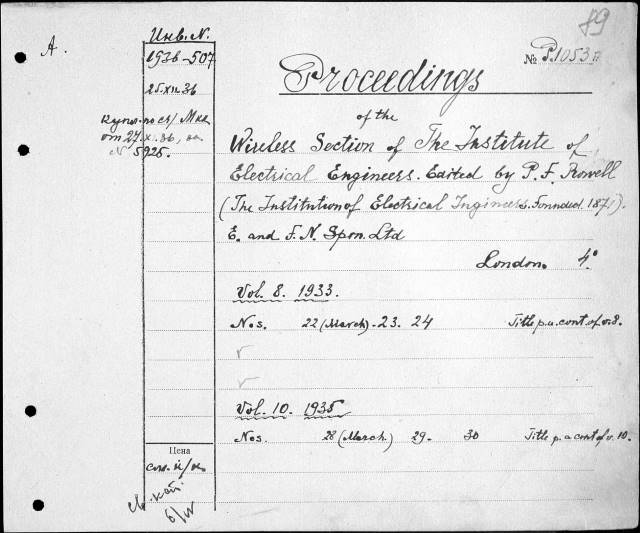 89
A.
Инв. N.
1936-507
25.XII.36
от 27.XI.36, за
N 5925.
№ P.1053
Proceedings
of the
Wireless Section of The Institute of
Electrical Engineers. Edited by P. F. Rowell
(The Institution of Electrical Ingineers. Founded. 1871).
E. and F. N. Spon. Ltd
London. 4°
Vol. 8. 1933.
Nos. 22 (March). 23. 24 Title p. a. cont. of v. 8.
Vol. 10. 1935
Nos. 28 (March) 29. 30 Title p. a cont. of v. 10.
Цена